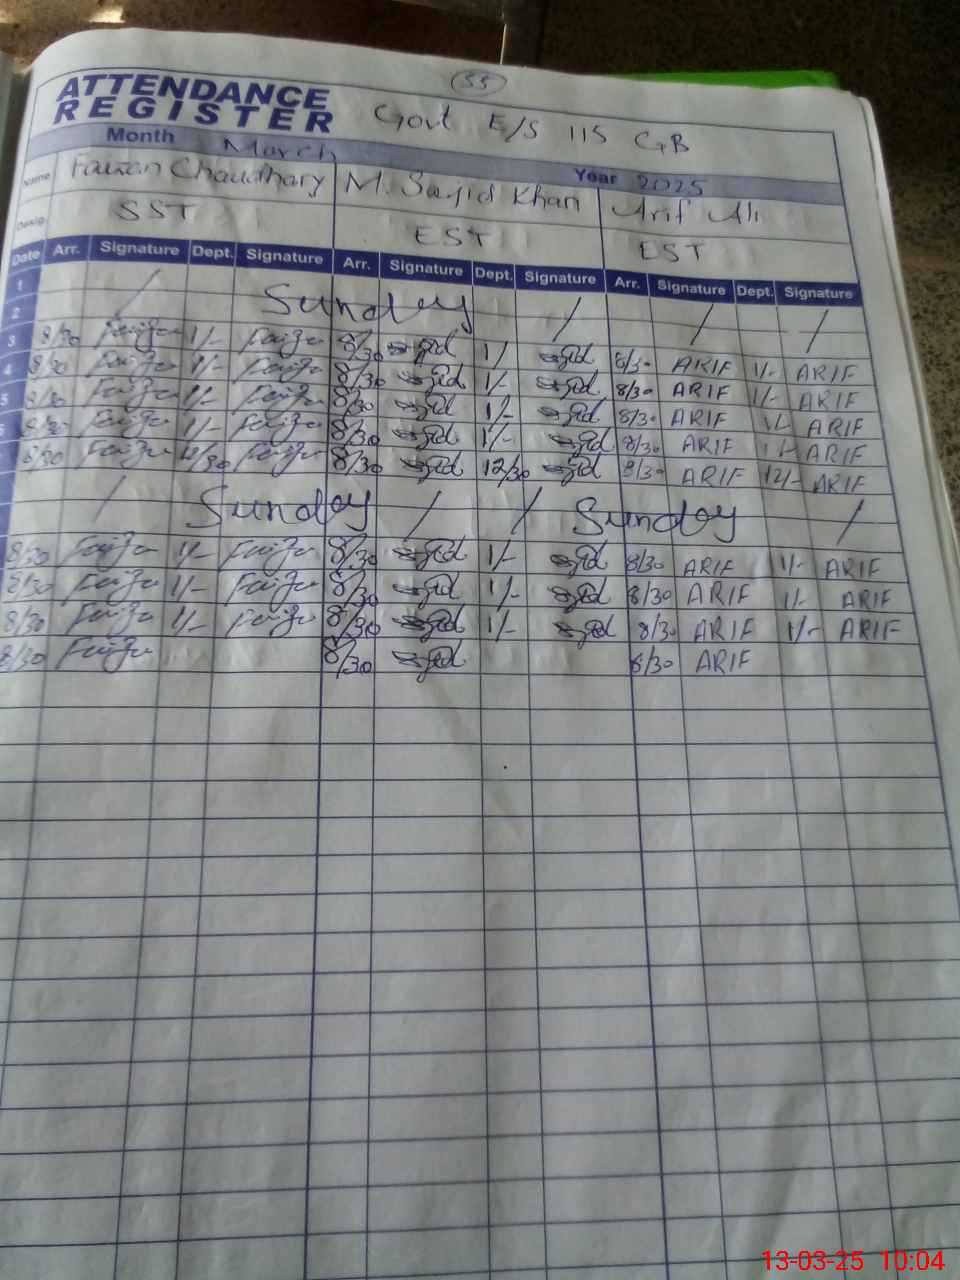 55
ATTENDANCE
REGISTER
Govt E/S 115 GB
Month March Year 2025
Name Faizan Chaudhary M. Sajid Khan Arif Ali
Desig. SST EST EST
Date Arr. Signature Dept. Signature Arr. Signature Dept. Signature Arr. Signature Dept. Signature
1
2 / Sunday / / /
3 8/30 Faiza 1/- Faiza 8/30 1/ 8/30 ARIF 1/- ARIF
4 8/30 Faiza 1/- Faiza 8/30 1/- 8/30 ARIF 1/- ARIF
5 8/30 Faiza 1/- Faiza 8/30 1/- 8/30 ARIF 1/- ARIF
8/30 Faiza 1/- Faiza 8/30 1/- 8/30 ARIF 1/- ARIF
8/30 Faiza 12/30 Faiza 8/30 12/30 8/30 ARIF 12/- ARIF
/ Sunday / / Sunday /
8/30 Faiza 1/- Faiza 8/30 1/- 8/30 ARIF 1/- ARIF
8/30 Faiza 1/- Faiza 8/30 1/- 8/30 ARIF 1/- ARIF
8/30 Faiza 1/- Faiza 8/30 1/- 8/30 ARIF 1/- ARIF
8/30 Faiza 8/30 8/30 ARIF
13-03-25 10:04